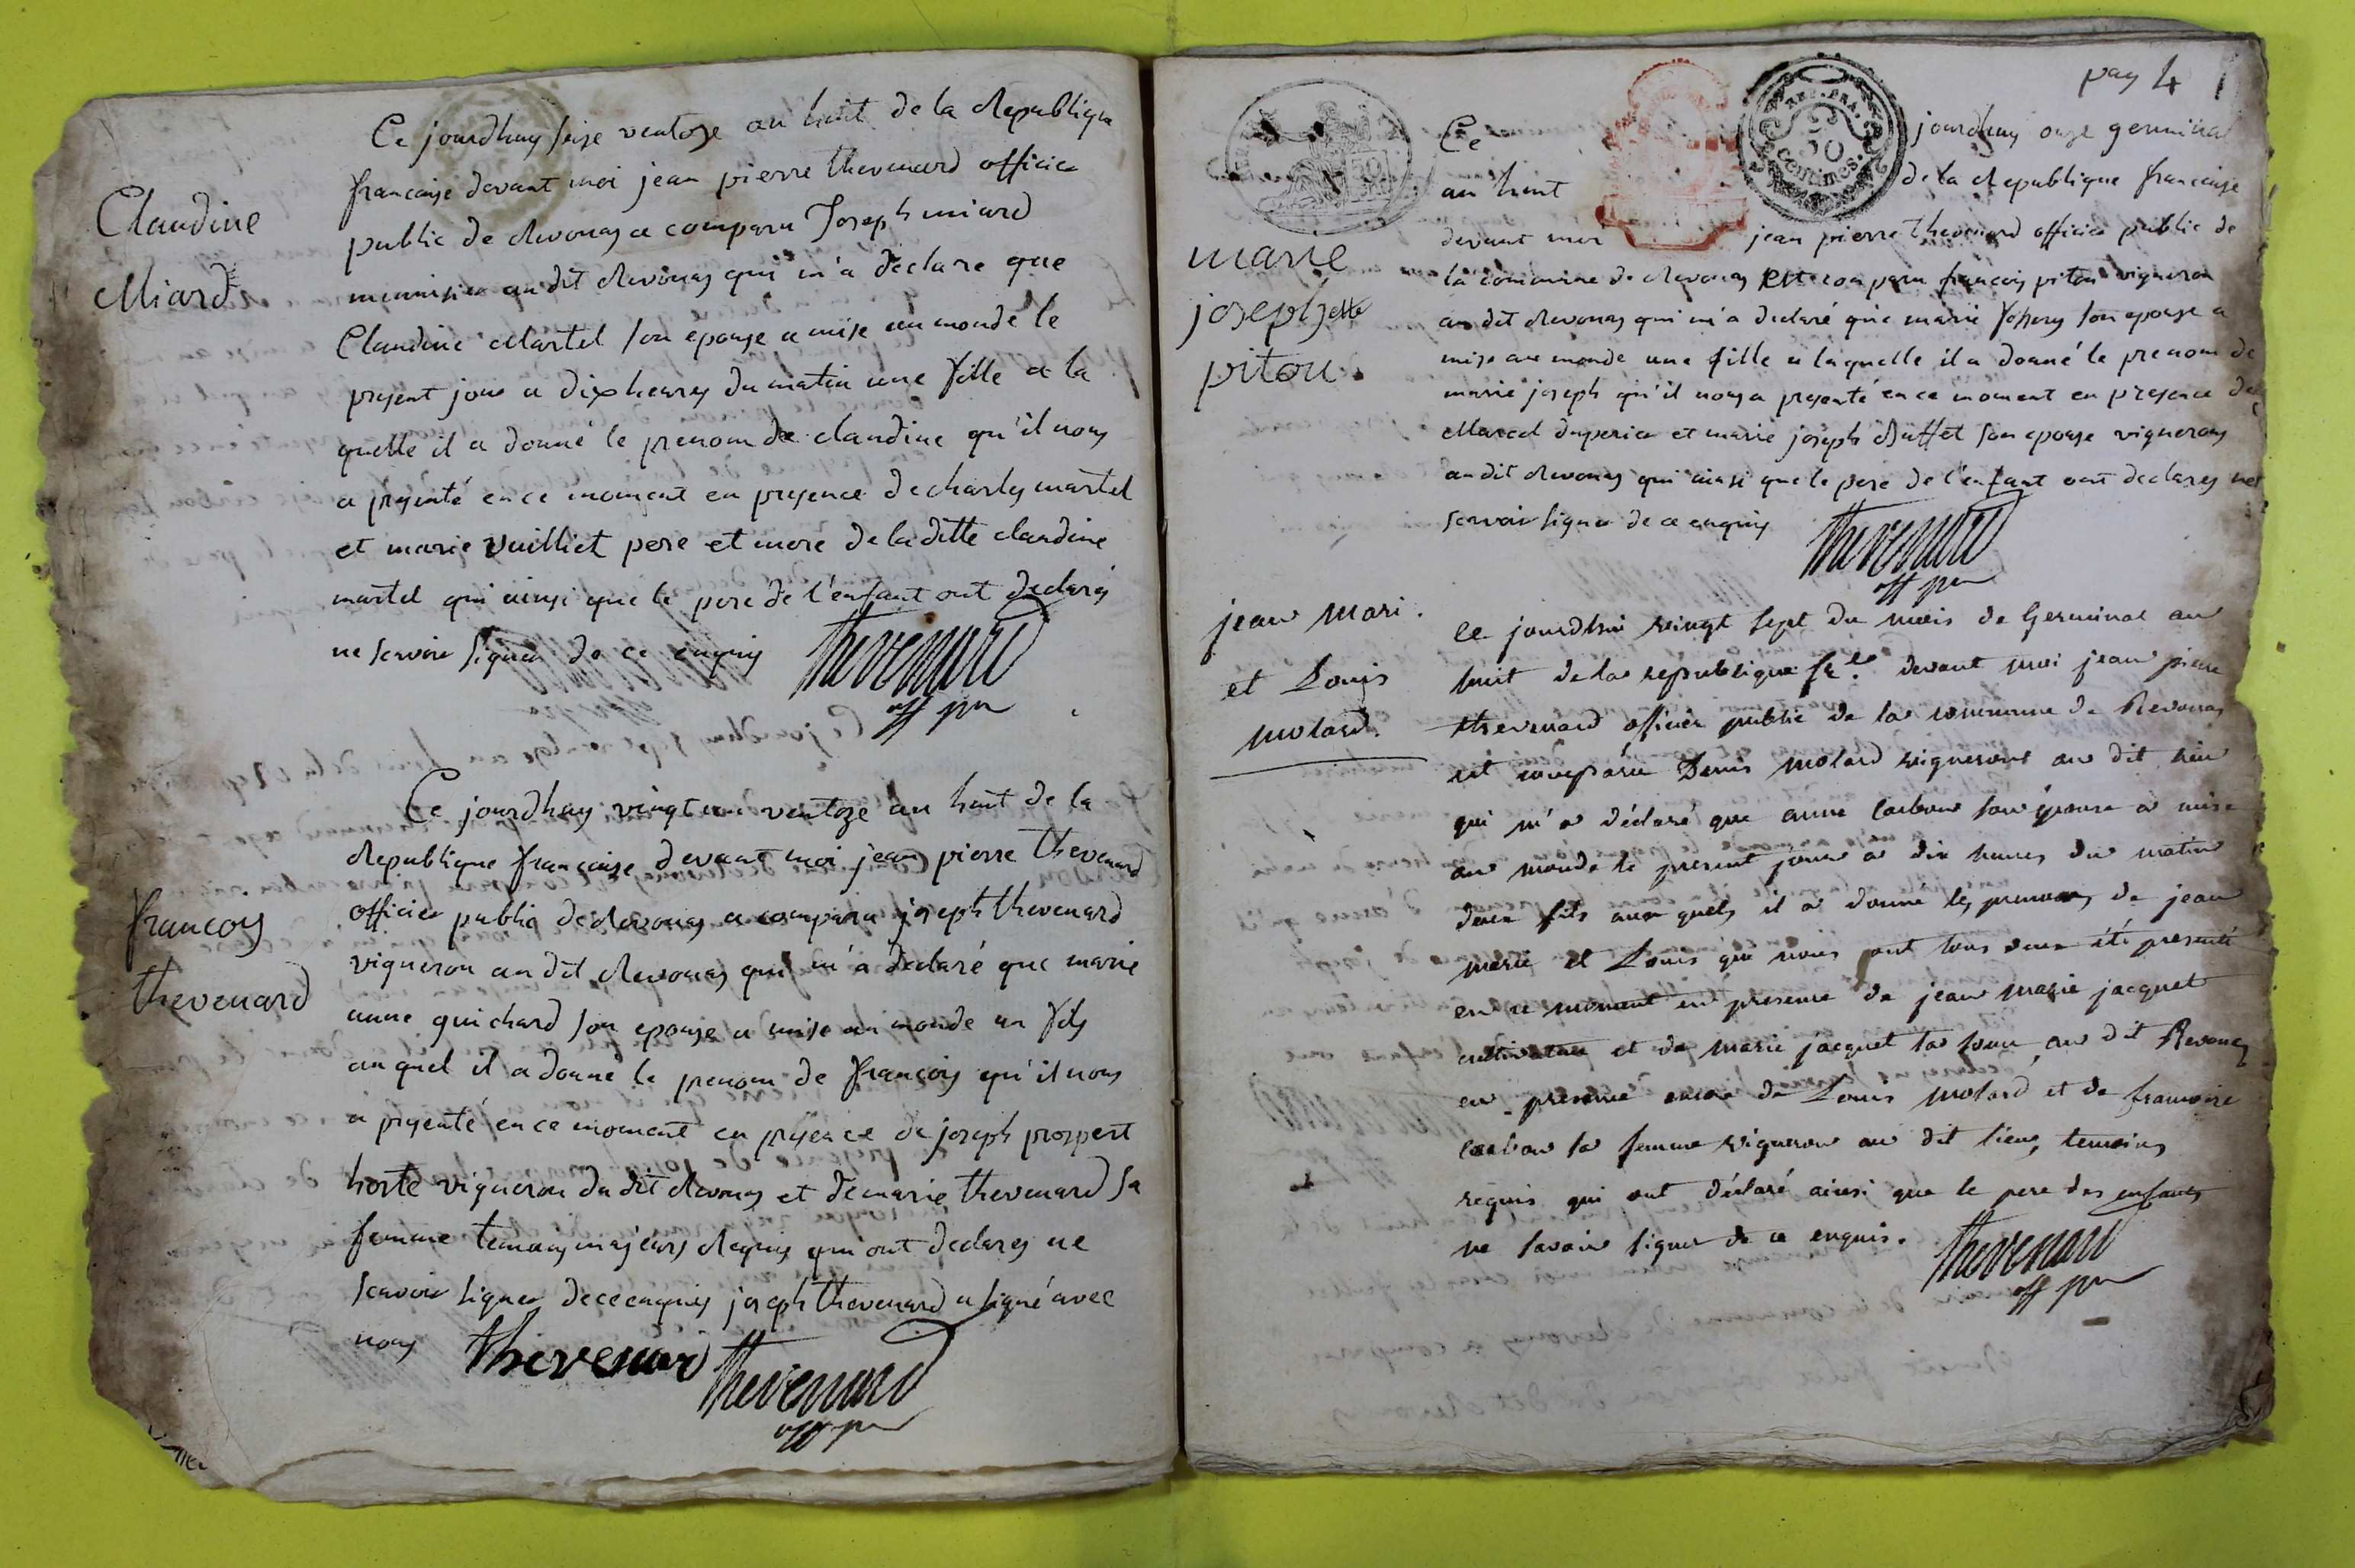 Ce jourdhuy seize ventose an huit de la Republique
francaise devant moi jean pierre thevenard officier
public de Revonas a comparu Joseph miard
menuisier au dit Revonas qui m'a declare que
Claudine Martel son epouse a mise au monde le
present jour a dix heures du matin une fille a la
quelle il a donné le prenom de claudine qu'il nous
a presenté en ce moment en presence de charles martel
et marie vuilliet pere et mere de la ditte claudine
martel qui ainsi que le pere de l'enfant ont declarés
ne scavoir signer de ce enquis
thevenard
off pu
Claudine
Miard
Ce jourdhuy vingt un ventoze an huit de la
Republique francaise devant moi jean pierre thevenard
officier public de Revonas a comparu joseph thevenard
vigneron au dit Revonas qui m'a declaré que marie
anne guichard son epouse a mise au monde un fils
au quel il a donné le prenom de francois qu'il nous
a presenté en ce moment en presence de joseph prospert
horte vigneron du dit Revonas et de marie thevenard sa
femme temoins majeurs Requis qui ont declares ne
scavoir signer de ce enquis joseph thevenard a signé avec
nous
thevenard
thevenard
off pu
francois
thevenard
pag 4
REP. FRA.
50
centimes.
Ce jourdhuy onze germinal
an huit de la Republique francaise
devant moi jean pierre thevenard officier public de
la commune de Revonas est comparu francois pitou vigneron
au dit Revonas qui m'a declaré que marie son epouse a
mise au monde une fille a laquelle il a donné le prenom de
marie joseph qu'il nous a presenté en ce moment en presence de
Marcel duperier et marie joseph Buffet son epouse vignerons
au dit Revonas qui ainsi que le pere de l'enfant ont declares ne
scavoir signer de ce enquis
thevenard
off pu
marie
josephette
pitou.
ce jourdhui vingt sept du mois de Germinal an
huit de la republique fr.se devant moi jean pierre
thevenard officier public de la commune de Revonas
est comparu Denis molard vigneront au dit lieu
qui m'a déclaré que anne carbon son épouse a mise
au monde le présent jour a dix heures du matin
deux fils aux quels il a donné les prenoms de jean
marie et Louis qui nous ont tous deux été presenté
en ce moment en presence de jean marie jacquet
cultivateur et de marie jacquet sa soeur au dit Revonas
en presence encore de Louis molard et de francoise
carbon sa femme vigneron au dit lieu, temoins
requis qui ont déclaré ainsi que le pere des enfants
ne savoir signer de ce enquis.
thevenard
off pu
jean mari.
et Louis
molard.